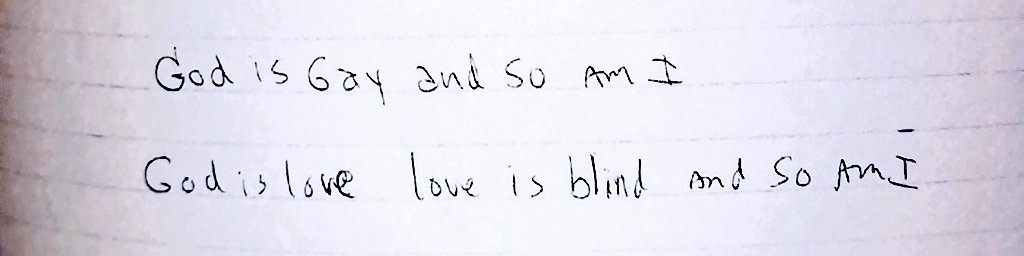 God is Gay and So Am I
God is love love is blind and So Am I